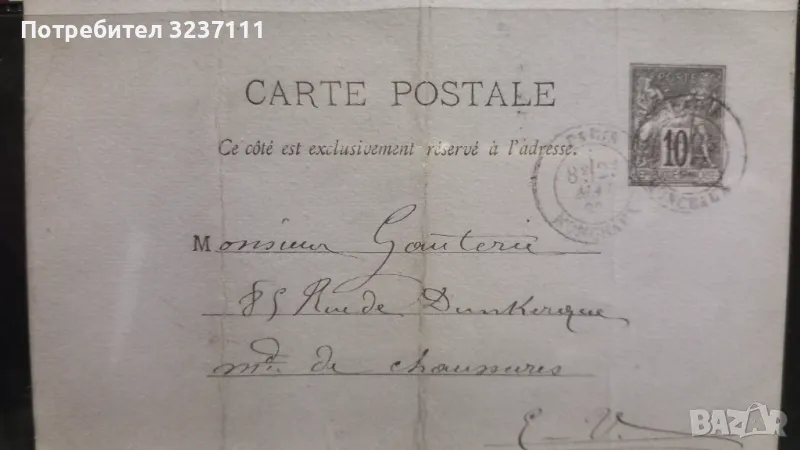 Потребител 3237111
CARTE POSTALE
POSTES
10
Ce côté est exclusivement réservé à l'adresse.
Monsieur Gauterie
85 Rue de Dunkerque
md. de chaussures
E. V.
BAZAR